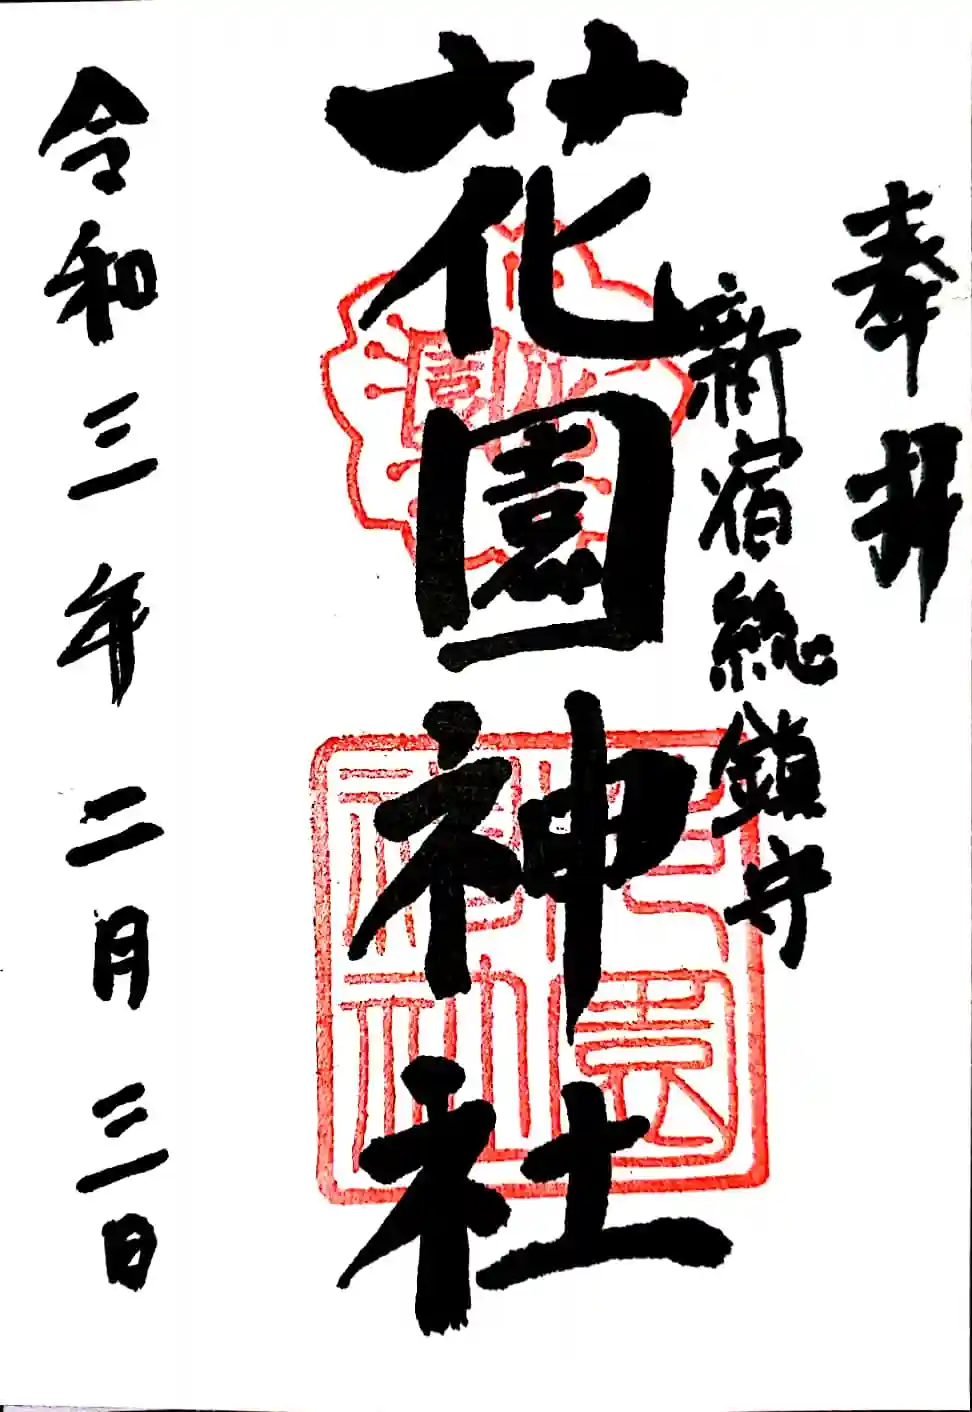 奉拝
新宿総鎮守
花園神社
令和三年二月三日
花園
花園
神社